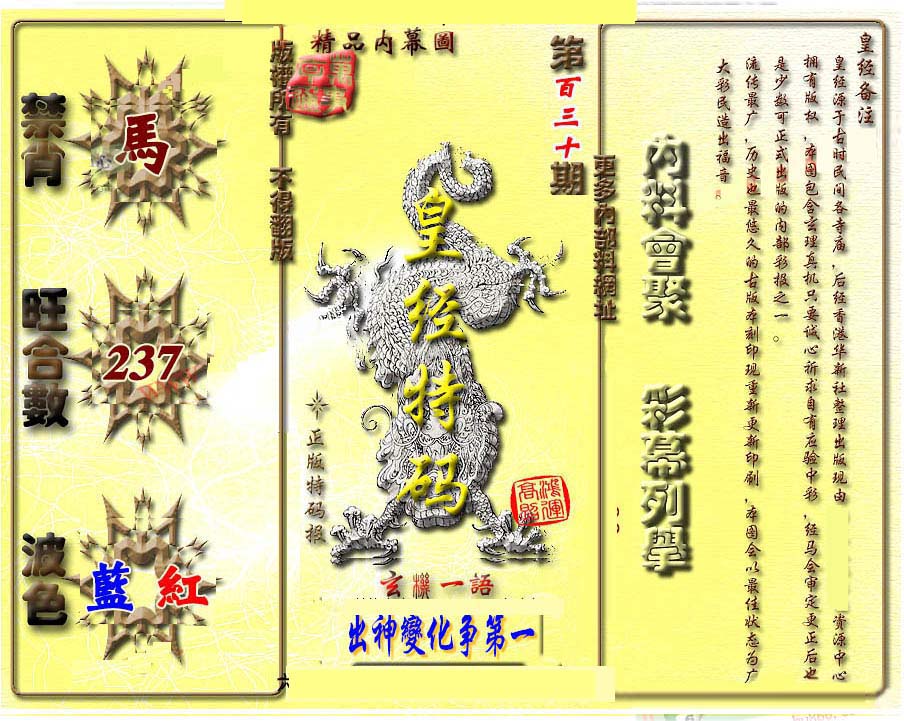 精品內幕圖
版權所有 不得翻版
第百三十期
更多內部料網址
禁肖
馬
旺合數
237
波色
藍 紅
皇经特码
正版特码报
鴻運高照
玄機一語
出神變化争第一
六
內料會聚
彩幕列舉
皇经备注
皇经源于古时民间各寺庙，后经香港华新社整理出版现由 资源中心
拥有版权，本图包含玄理真机只要诚心祈求自有应验中彩，经马会审定更正后也
是少数可正式出版的内部彩报之一。
流传最广，历史也最悠久的古版本刻印现重新更新印刷，本图会以最佳状态为广
大彩民造出福音